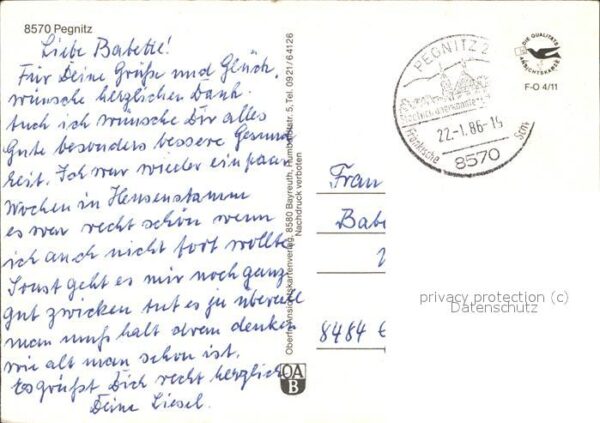 8570 Pegnitz
Liebe Babette!
Für Deine Grüße und Glück-
wünsche herzlichen Dank.
Auch ich wünsche Dir alles
Gute besonders bessere Gesund
heit. Ich war wieder ein paar
Wochen in Heusenstamm
es war recht schön wenn
ich auch nicht fort wollte
Sonst geht es mir noch ganz
gut zwicken tut es ja überall
man muß halt dran denken
wie alt man schon ist.
Es grüßt Dich recht herzlich
Deine Liesel.
Oberfr. Ansichtskartenverlag, 8580 Bayreuth, Humboldtstr. 5, Tel. 0921/64126
Nachdruck verboten
OA
B
PEGNITZ 2
22.-1.86-19
Fränkische
8570
DIE QUALITÄTS
ANSICHTSKARTE
F-O 4/11
Frau
Babe
8484
privacy protection (c)
Datenschutz